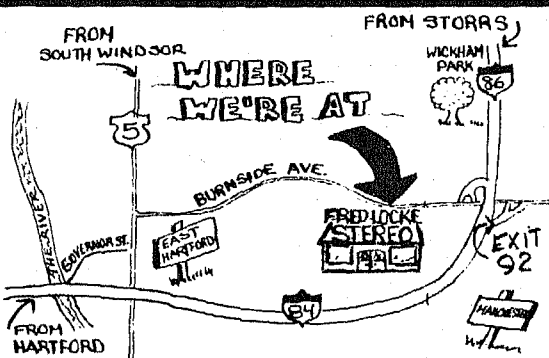 FROM STORRS
FROM
SOUTH WINDSOR
WICKHAM
PARK
WHERE
WE'RE AT
86
5
BURNSIDE AVE.
FRED LOCKE
STEREO
THE RIVER
GOVERNOR ST.
EAST
HARTFORD
EXIT
92
84
MANCHESTER
FROM
HARTFORD